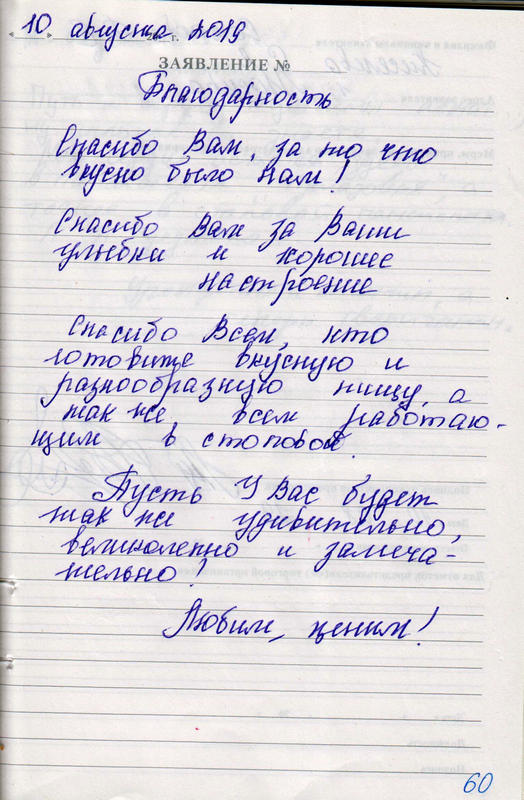 « 10 » августа 2019 г.
ЗАЯВЛЕНИЕ №
Благодарность
Спасибо Вам, за то что
вкусно было нам!
Спасибо Вам за Ваши
улыбки и хорошее
настроение
Спасибо Всем, кто
готовите вкусную и
разнообразную пищу, а
так же всем работаю-
щим в столовой.
Пусть У Вас будет
так же удивительно,
великолепно и замеча-
тельно!
Любим, ценим!
60